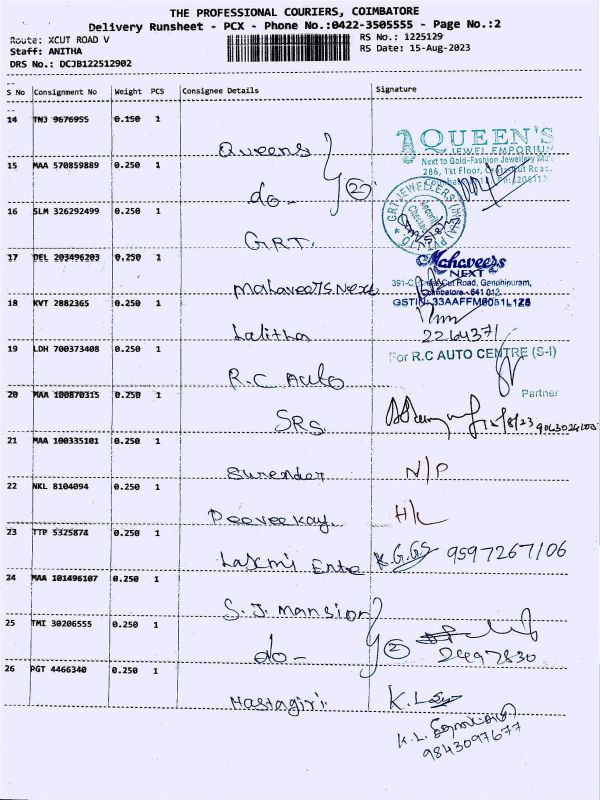 THE PROFESSIONAL COURIERS, COIMBATORE
Delivery Runsheet - PCX - Phone No.:0422-3505555 - Page No.:2
Route: XCUT ROAD V RS No.: 1225129
Staff: ANITHA RS Date: 15-Aug-2023
DRS No.: DCJB122512902
S No Consignment No Weight PCS Consignee Details Signature
14 TNJ 9676955 0.150 1 Queens
QUEEN'S
JEWEL EMPORIUM
Next to Gold-Fashion Jewellery
286, 1st Floor, Road,
15 MAA 570859889 0.250 1 do- 2
GRT JEWELLERS (INDIA) PVT. LTD.
Security
Checked
16 SLM 326292499 0.250 1 GRT.
17 DEL 203496203 0.250 1 Mahaveers Next
Mahaveers
NEXT
391-C, Road, Gandhipuram,
Coimbatore - 641 012.
GSTIN: 33AAFFM8051L1Z6
18 KVT 2882365 0.250 1 Lalitha
2264371
19 LDH 700373408 0.250 1 R.C Auto
For R.C AUTO CENTRE (S-I)
Partner
20 MAA 100870315 0.250 1 SRS
21 MAA 100335101 0.250 1 Surender N/P
22 NKL 8104094 0.250 1 Peeveekay H/L
23 TTP 5325874 0.250 1 Laxmi Ente K.G.GS 9597267106
24 MAA 101496107 0.250 1 S.J. Mansion
25 TMI 30206555 0.250 1 do- 2
2497830
26 PGT 4466340 0.250 1 Hastagiri
K.L
K.L.
9843097677